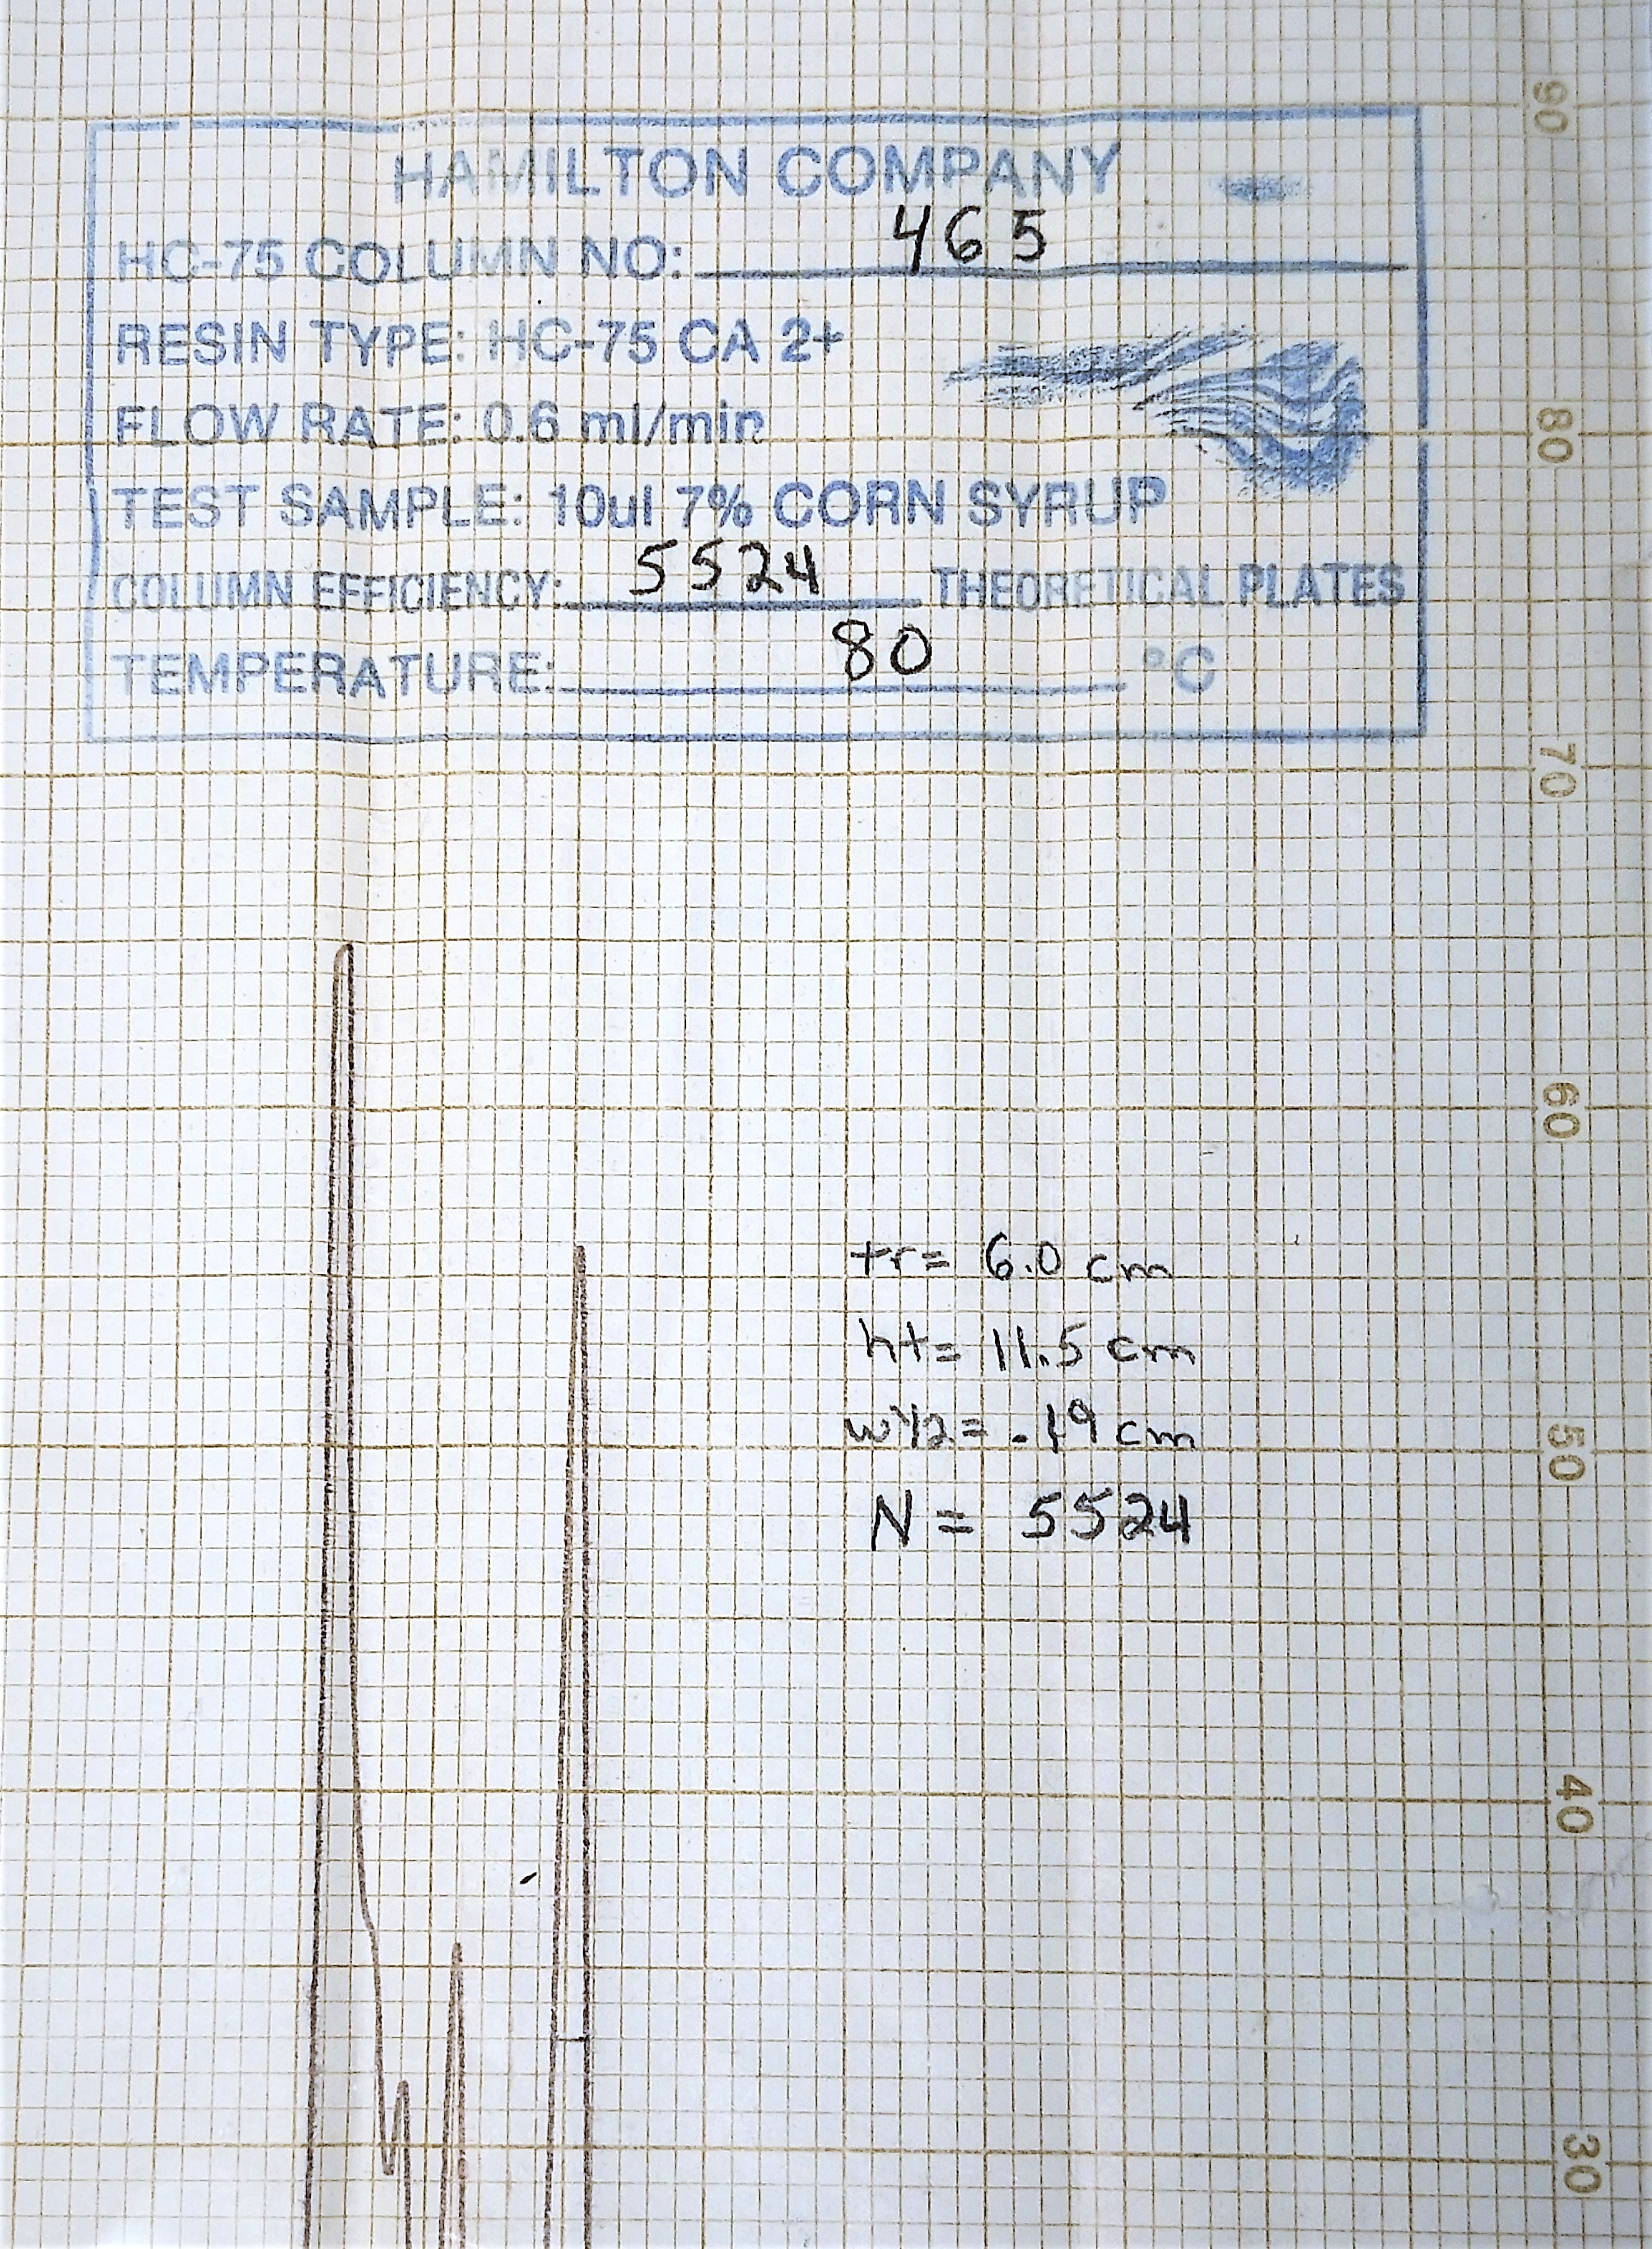 HAMILTON COMPANY
HC-75 COLUMN NO: 465
RESIN TYPE: HC-75 CA 2+
FLOW RATE: 0.6 ml/min
TEST SAMPLE: 10ul 7% CORN SYRUP
COLUMN EFFICIENCY: 5524 THEORETICAL PLATES
TEMPERATURE: 80 °C
tr= 6.0 cm
ht= 11.5 cm
w1/2= .19 cm
N = 5524
90
80
70
60
50
40
30